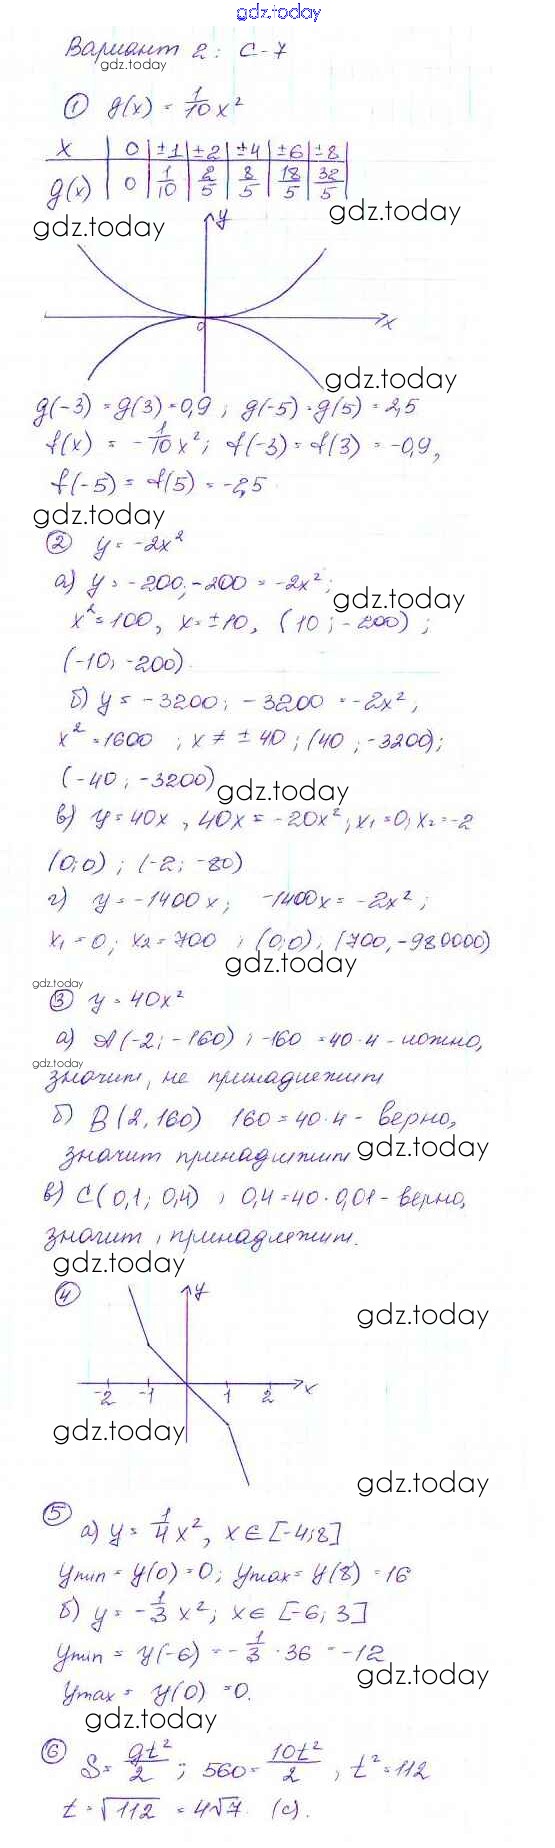 gdz.today
Вариант 2: С-7
gdz.today
① g(x) = 1/10 x²
x | 0 | ±1 | ±2 | ±4 | ±6 | ±8
g(x) | 0 | 1/10 | 2/5 | 8/5 | 18/5 | 32/5
gdz.today gdz.today
y
0 x
gdz.today
g(-3) = g(3) = 0,9 ; g(-5) = g(5) = 2,5
f(x) = -1/10 x²; f(-3) = f(3) = -0,9,
f(-5) = f(5) = -2,5
gdz.today
② y = -2x²
а) y = -200; -200 = -2x²;
gdz.today
x² = 100, x = ±10, (10 ; -200) ;
(-10; -200)
б) y = -3200; -3200 = -2x²,
x² = 1600 ; x ≠ ±40 ; (40 ; -3200);
(-40 ; -3200)
gdz.today
в) y = 40x , 40x = -20x²; x₁ = 0, x₂ = -2
(0;0) ; (-2; -80)
г) y = -1400x; -1400x = -2x² ;
x₁ = 0; x₂ = 700 ; (0;0), (700, -980000)
gdz.today
gdz.today
③ y = 40x²
а) A(-2; -160) ; -160 = 40·4 - ложно,
gdz.today
значит, не принадлежит
б) B(2, 160) 160 = 40·4 - верно,
gdz.today
значит принадлежит
в) C(0,1; 0,4) ; 0,4 = 40·0,01 - верно,
значит, принадлежит.
gdz.today
④ y
gdz.today
-2 -1 1 2 x
gdz.today
gdz.today
⑤ а) y = 1/4 x², x ∈ [-4;8]
yмин = y(0) = 0; yмах = y(8) = 16
б) y = -1/3 x²; x ∈ [-6; 3]
yмин = y(-6) = -1/3 · 36 = -12
gdz.today
yмах = y(0) = 0.
gdz.today
⑥ S = gt²/2 ; 560 = 10t²/2 , t² = 112
t = √112 = 4√7 (с).